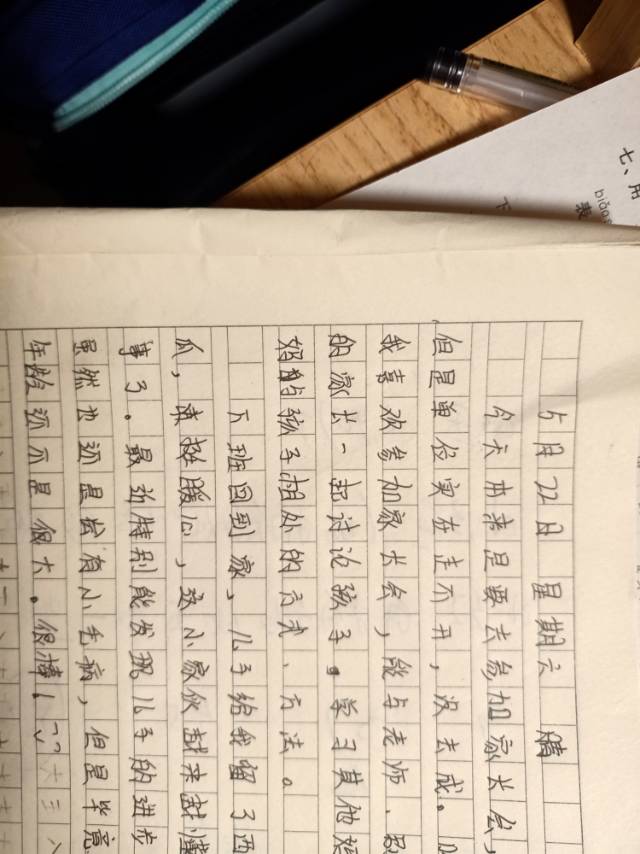 七、用
biǎo
下
5月22日 星期六 晴
今天本来是要去参加家长会,
但是单位实在走不开,没去成。
我喜欢参加家长会,能与老师、
的家长一起讨论孩子。学习其他
孩子相处的方式、方法。
下班回到家,儿子给我留了西
瓜,真挺暖心,这小家伙越来越懂
事了。最近特别能发现儿子的进步
虽然也还是会有小毛病,但是毕竟
年龄还不是很大。很棒!